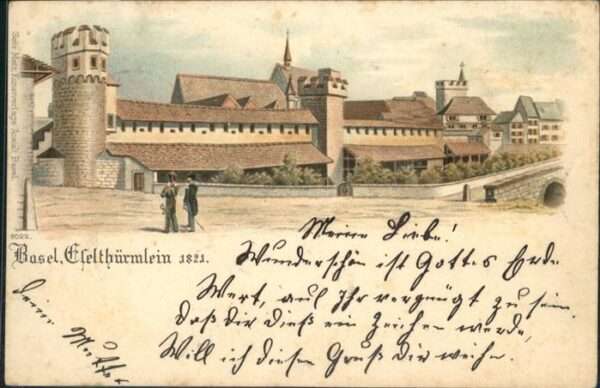 2022.
Basel, Eselthürmlein 1821.
Meine Liebe!
Wunderschön ist Gottes Erde
Wert, auf Ihr vergnügt zu sein.
Daß Dir dieß ein Zeichen werde,
Will ich diesen Gruß Dir weihn.
Deine Mutter